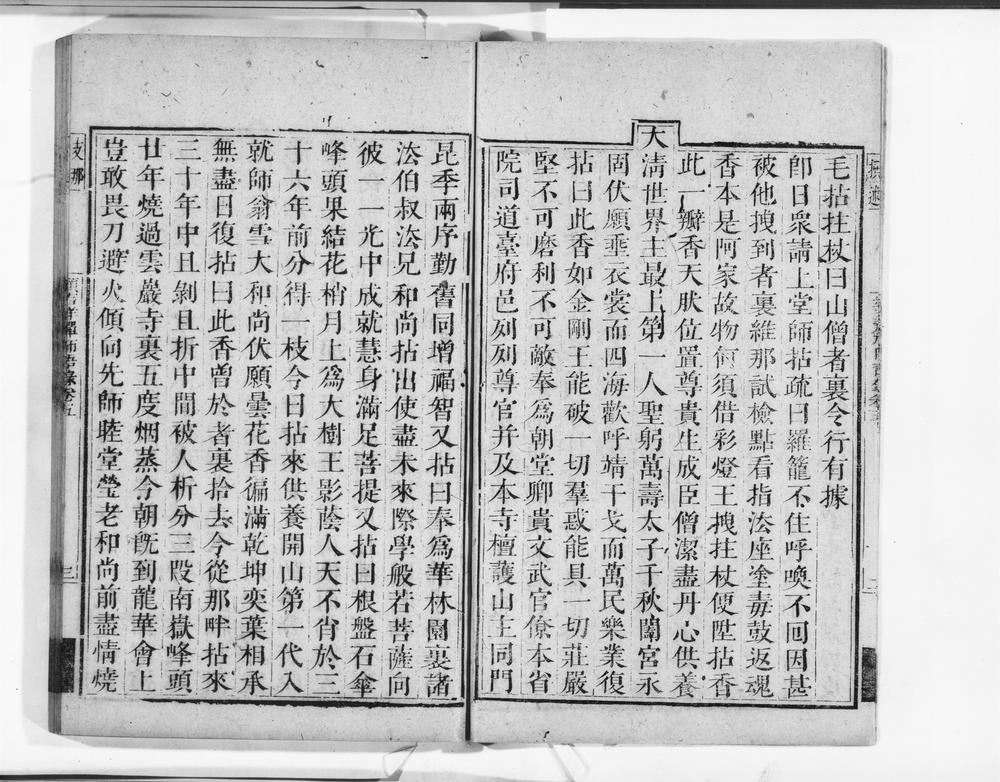 毛拈拄杖曰山僧者裏令行有據
卽日衆請上堂師拈疏曰羅籠不住呼喚不囘因甚
被他拽到者裏維那試檢點看指法座塗毒鼓返魂
香本是阿家故物何須借彩燈王拽拄杖便陞拈香
此一瓣香天肰位置尊貴生成臣僧潔盡丹心供養
大淸世界主最上第一人聖躬萬壽太子千秋闔宮永
固伏願垂衣裳而四海歡呼靖干戈而萬民樂業復
拈曰此香如金剛王能破一切羣惑能具一切莊嚴
堅不可磨利不可敵奉爲朝堂卿貴文武官僚本省
院司道臺府邑列列尊官并及本寺檀護山主同門
昆季兩序勤舊同增福智又拈曰奉爲華林園裏諸
法伯叔法兄和尚拈出使盡未來際學般若菩薩向
彼一一光中成就慧身滿足菩提又拈曰根盤石傘
峰頭果結花梢月上爲大樹王影蔭人天不肖於三
十六年前分得一枝今日拈來供養開山第一代入
就師翁雪大和尚伏願曇花香徧滿乾坤奕葉相承
無盡日復拈曰此香曾於者裏拾去今從那畔拈來
三十年中且剝且折中間被人析分三段南嶽峰頭
廿年燒過雲巖寺裏五度烟蒸今朝旣到龍華會上
豈敢畏刀避火傾向先師睦堂瑩老和尚前盡情燒
支那
語錄卷五
三